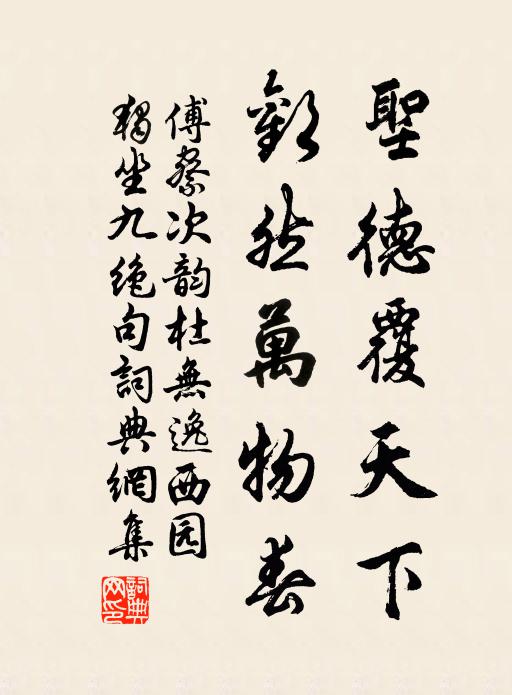 聖德覆天下
歡然萬物春
傅察次韵杜無逸西园
獨坐九絶句詞典網集
詞典
网印